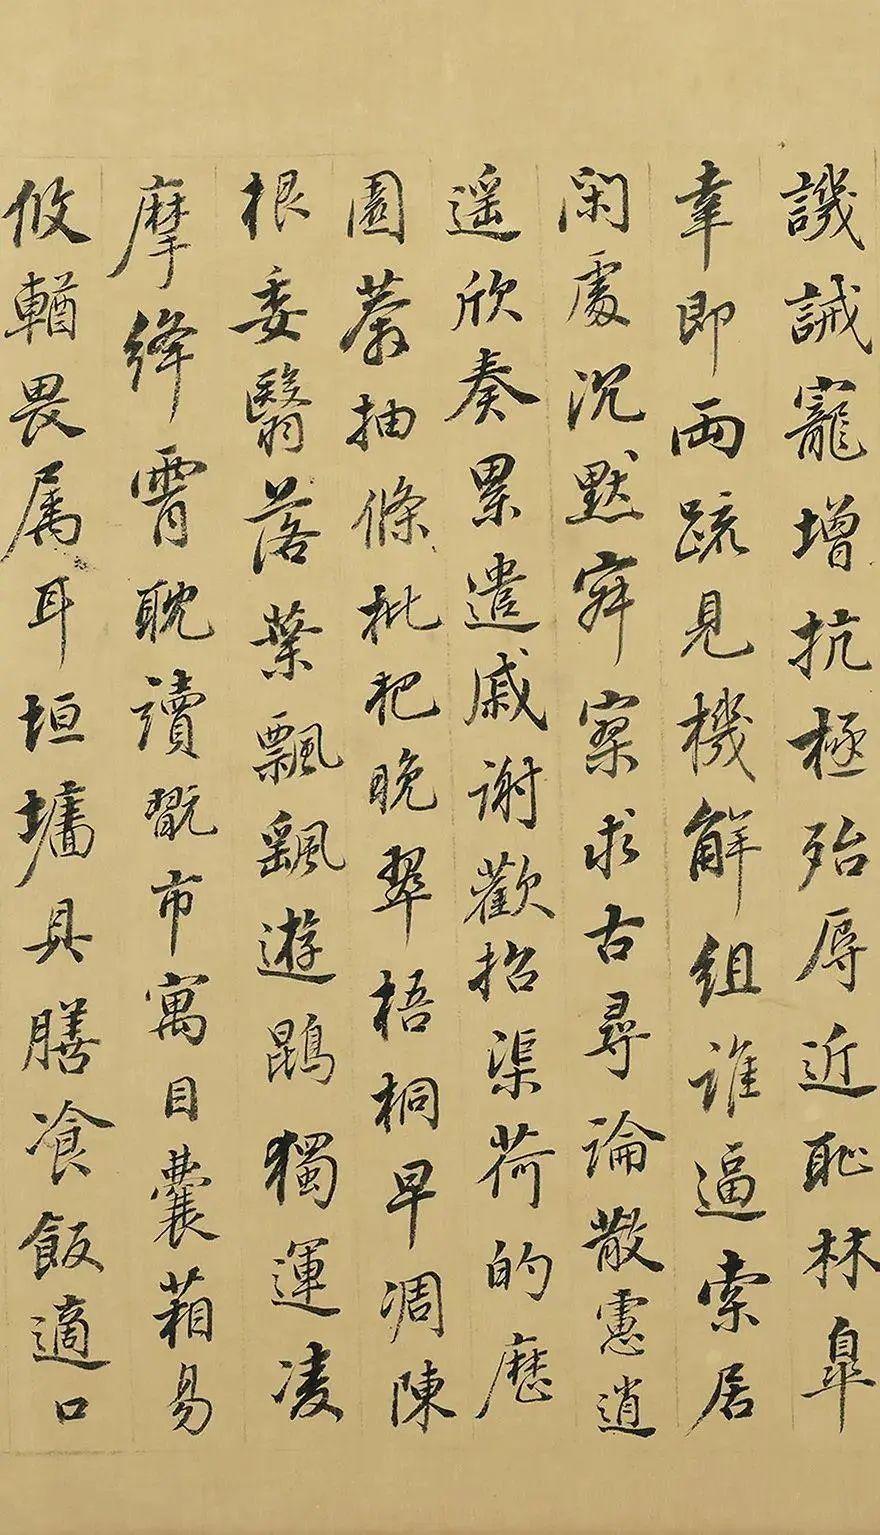 譏誡寵增抗極殆辱近恥林皐
幸即兩疏見機解組誰逼索居
閑處沉默寂寥求古尋論散慮逍
遥欣奏累遣慼謝歡招渠荷的歷
園莽抽條枇杷晚翠梧桐早凋陳
根委翳落葉飄飖遊鵾獨運凌
摩絳霄耽讀翫市寓目囊葙易
攸輶畏属耳垣墻具膳飡飯適口